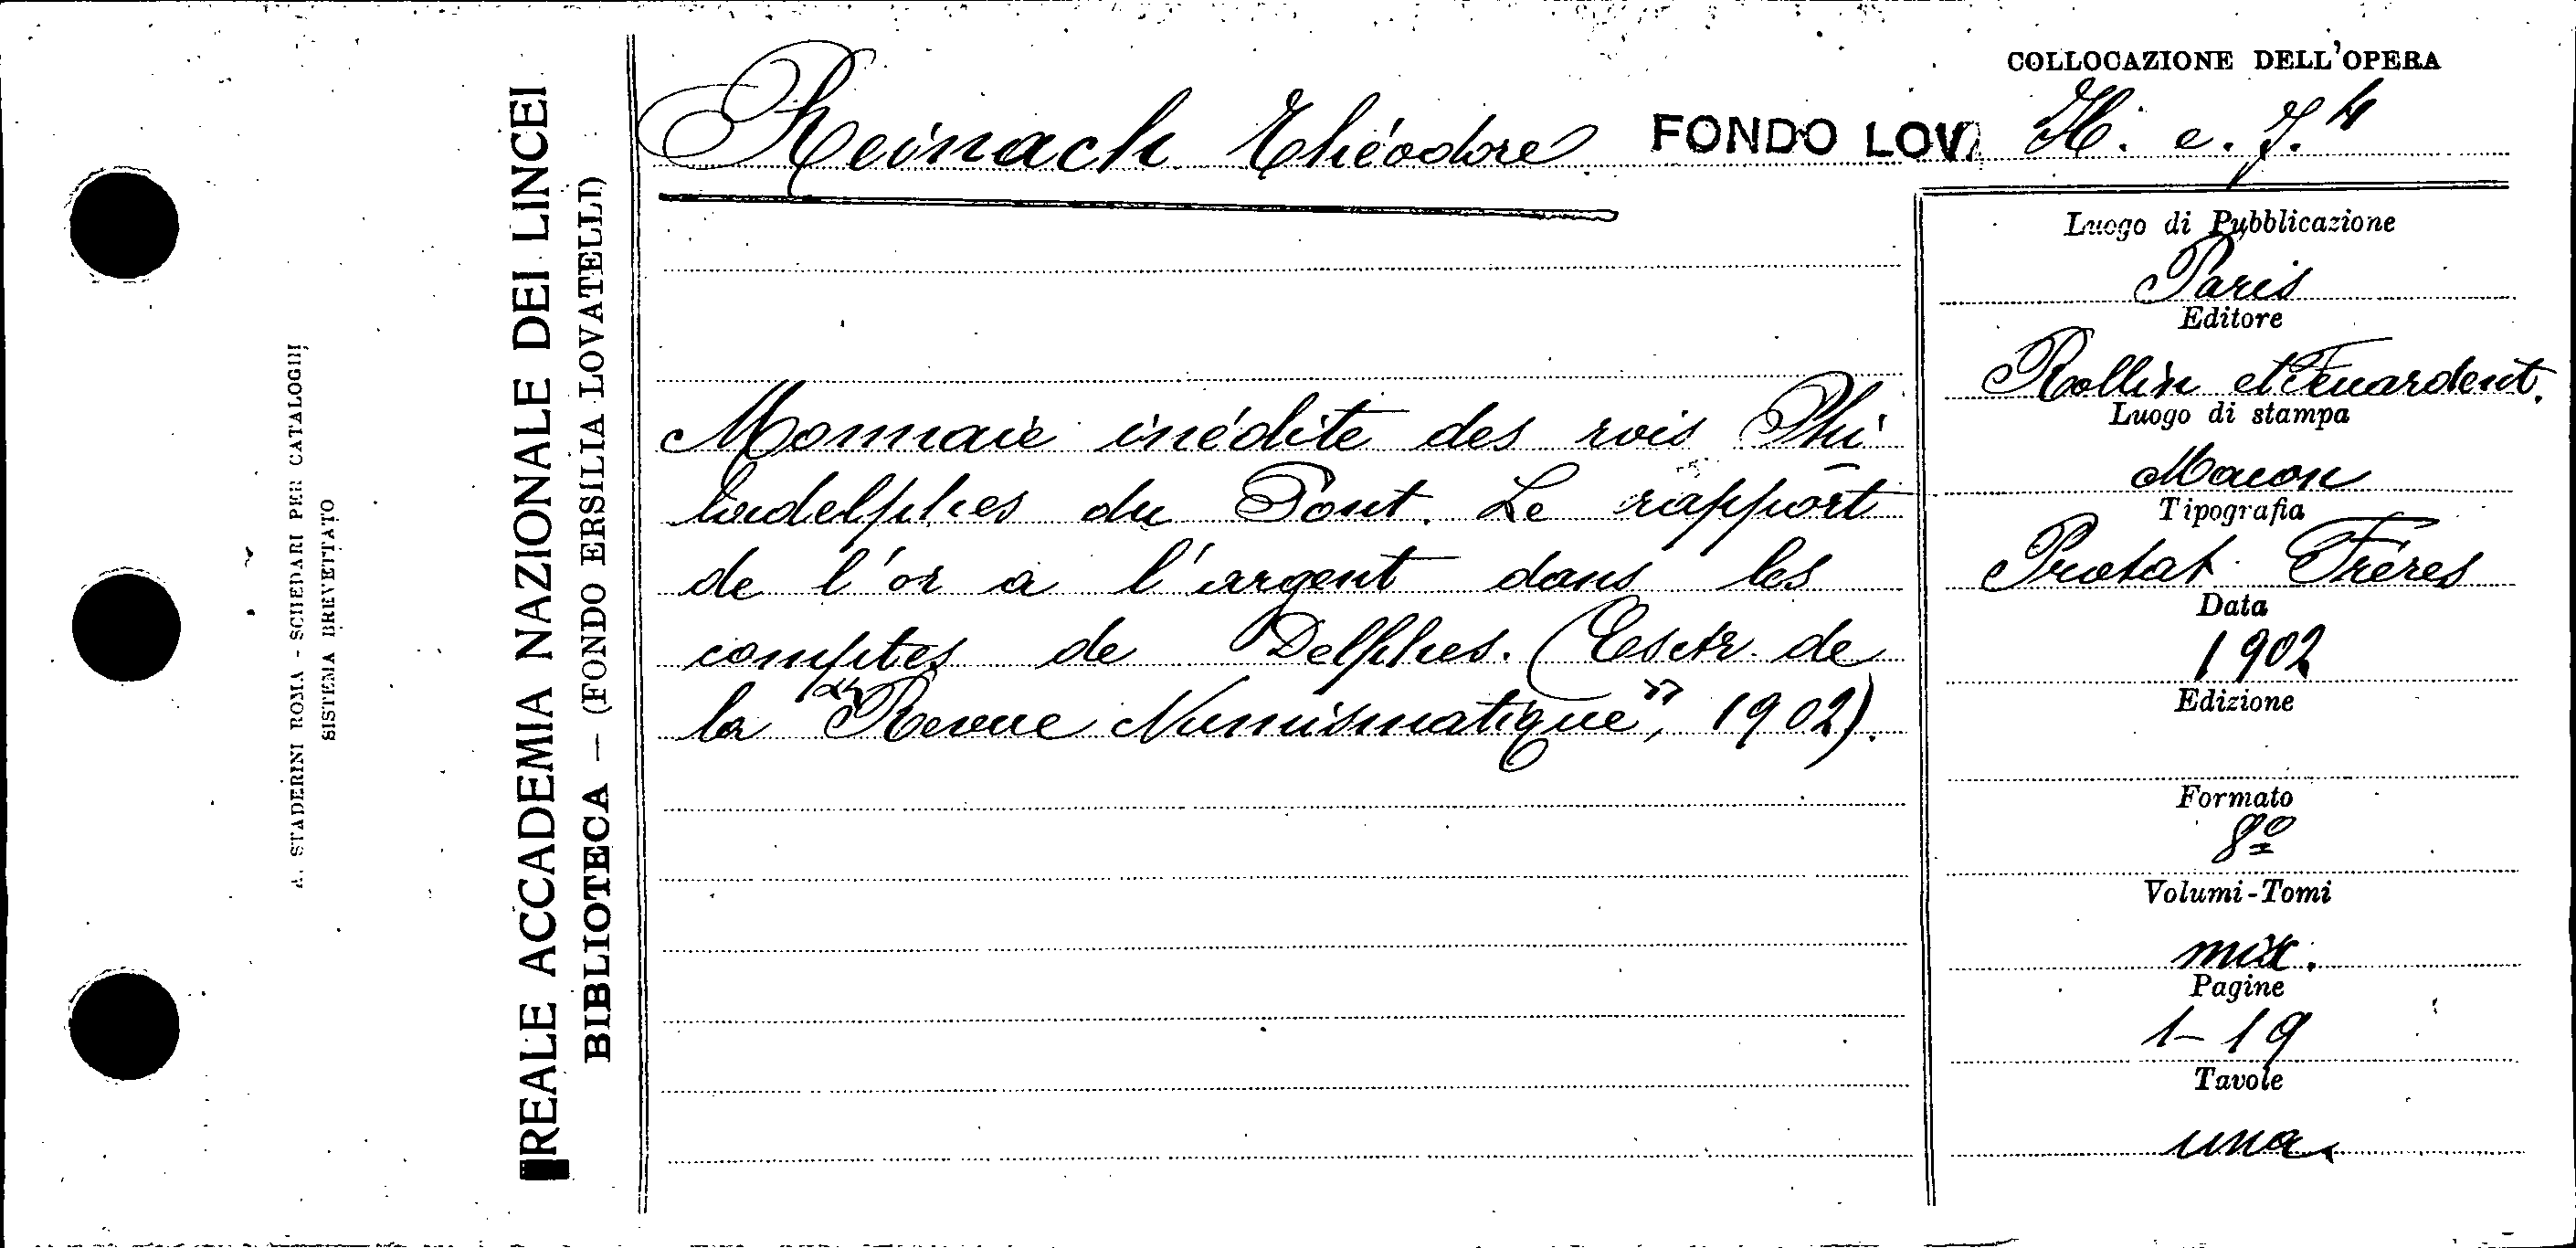 COLLOCAZIONE DELL'OPERA
Reinach Théodore FONDO LOV. H. e. 7.4
REALE ACCADEMIA NAZIONALE DEI LINCEI
BIBLIOTECA — (FONDO ERSILIA LOVATELLI)
A. STADERINI ROMA - SCHEDARI PER CATALOGHI
SISTEMA BREVETTATO
Monnaie inédite des rois Phi
ladelphes du Pont. Le rapport
de l'or a l'argent dans les
comptes de Delphes. (Estr. de
la "Revue Numismatique", 1902).
Luogo di Pubblicazione
Paris
Editore
Rollin et Feuardent.
Luogo di stampa
Macon
Tipografia
Protat Frères
Data
1902
Edizione
Formato
8º
Volumi-Tomi
mix.
Pagine
1-19
Tavole
una.